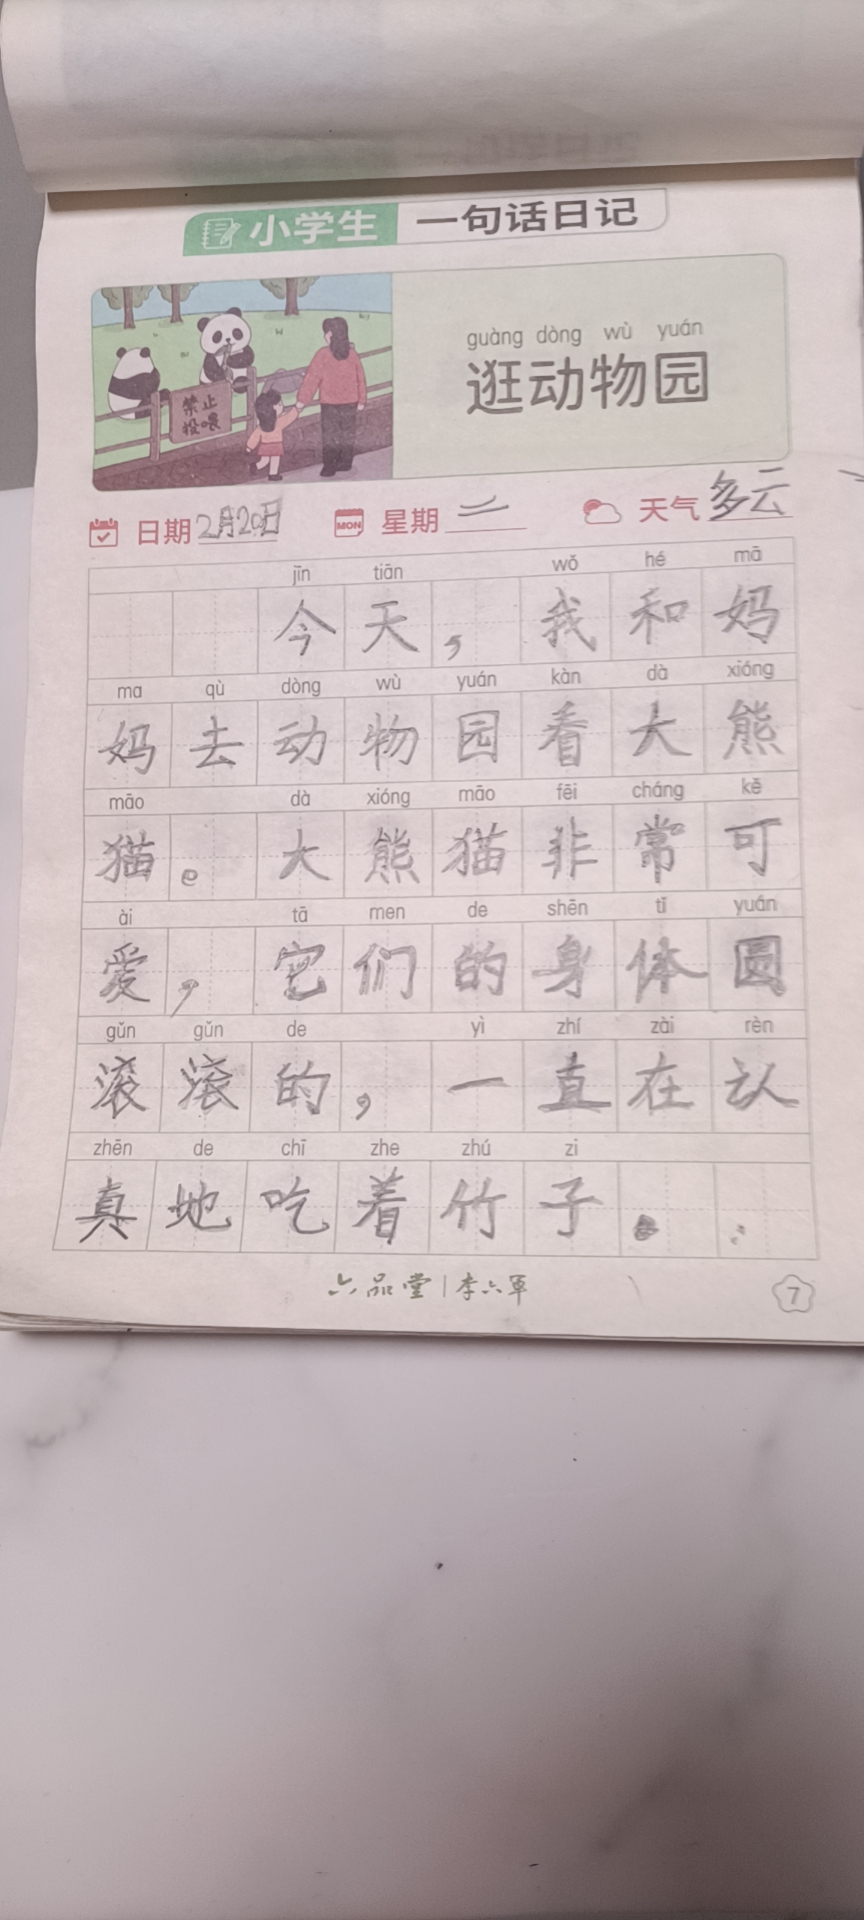 小学生 一句话日记
guàng dòng wù yuán
逛动物园
禁止
投喂
日期 2月20日 MON 星期 二 天气 多云
jīn tiān wǒ hé mā
今天，我和妈
ma qù dòng wù yuán kàn dà xióng
妈去动物园看大熊
māo dà xióng māo fēi cháng kě
猫。大熊猫非常可
ài tā men de shēn tǐ yuán
爱，它们的身体圆
gǔn gǔn de yì zhí zài rèn
滚滚的，一直在认
zhēn de chī zhe zhú zi
真地吃着竹子。
六品堂 | 李六军
7